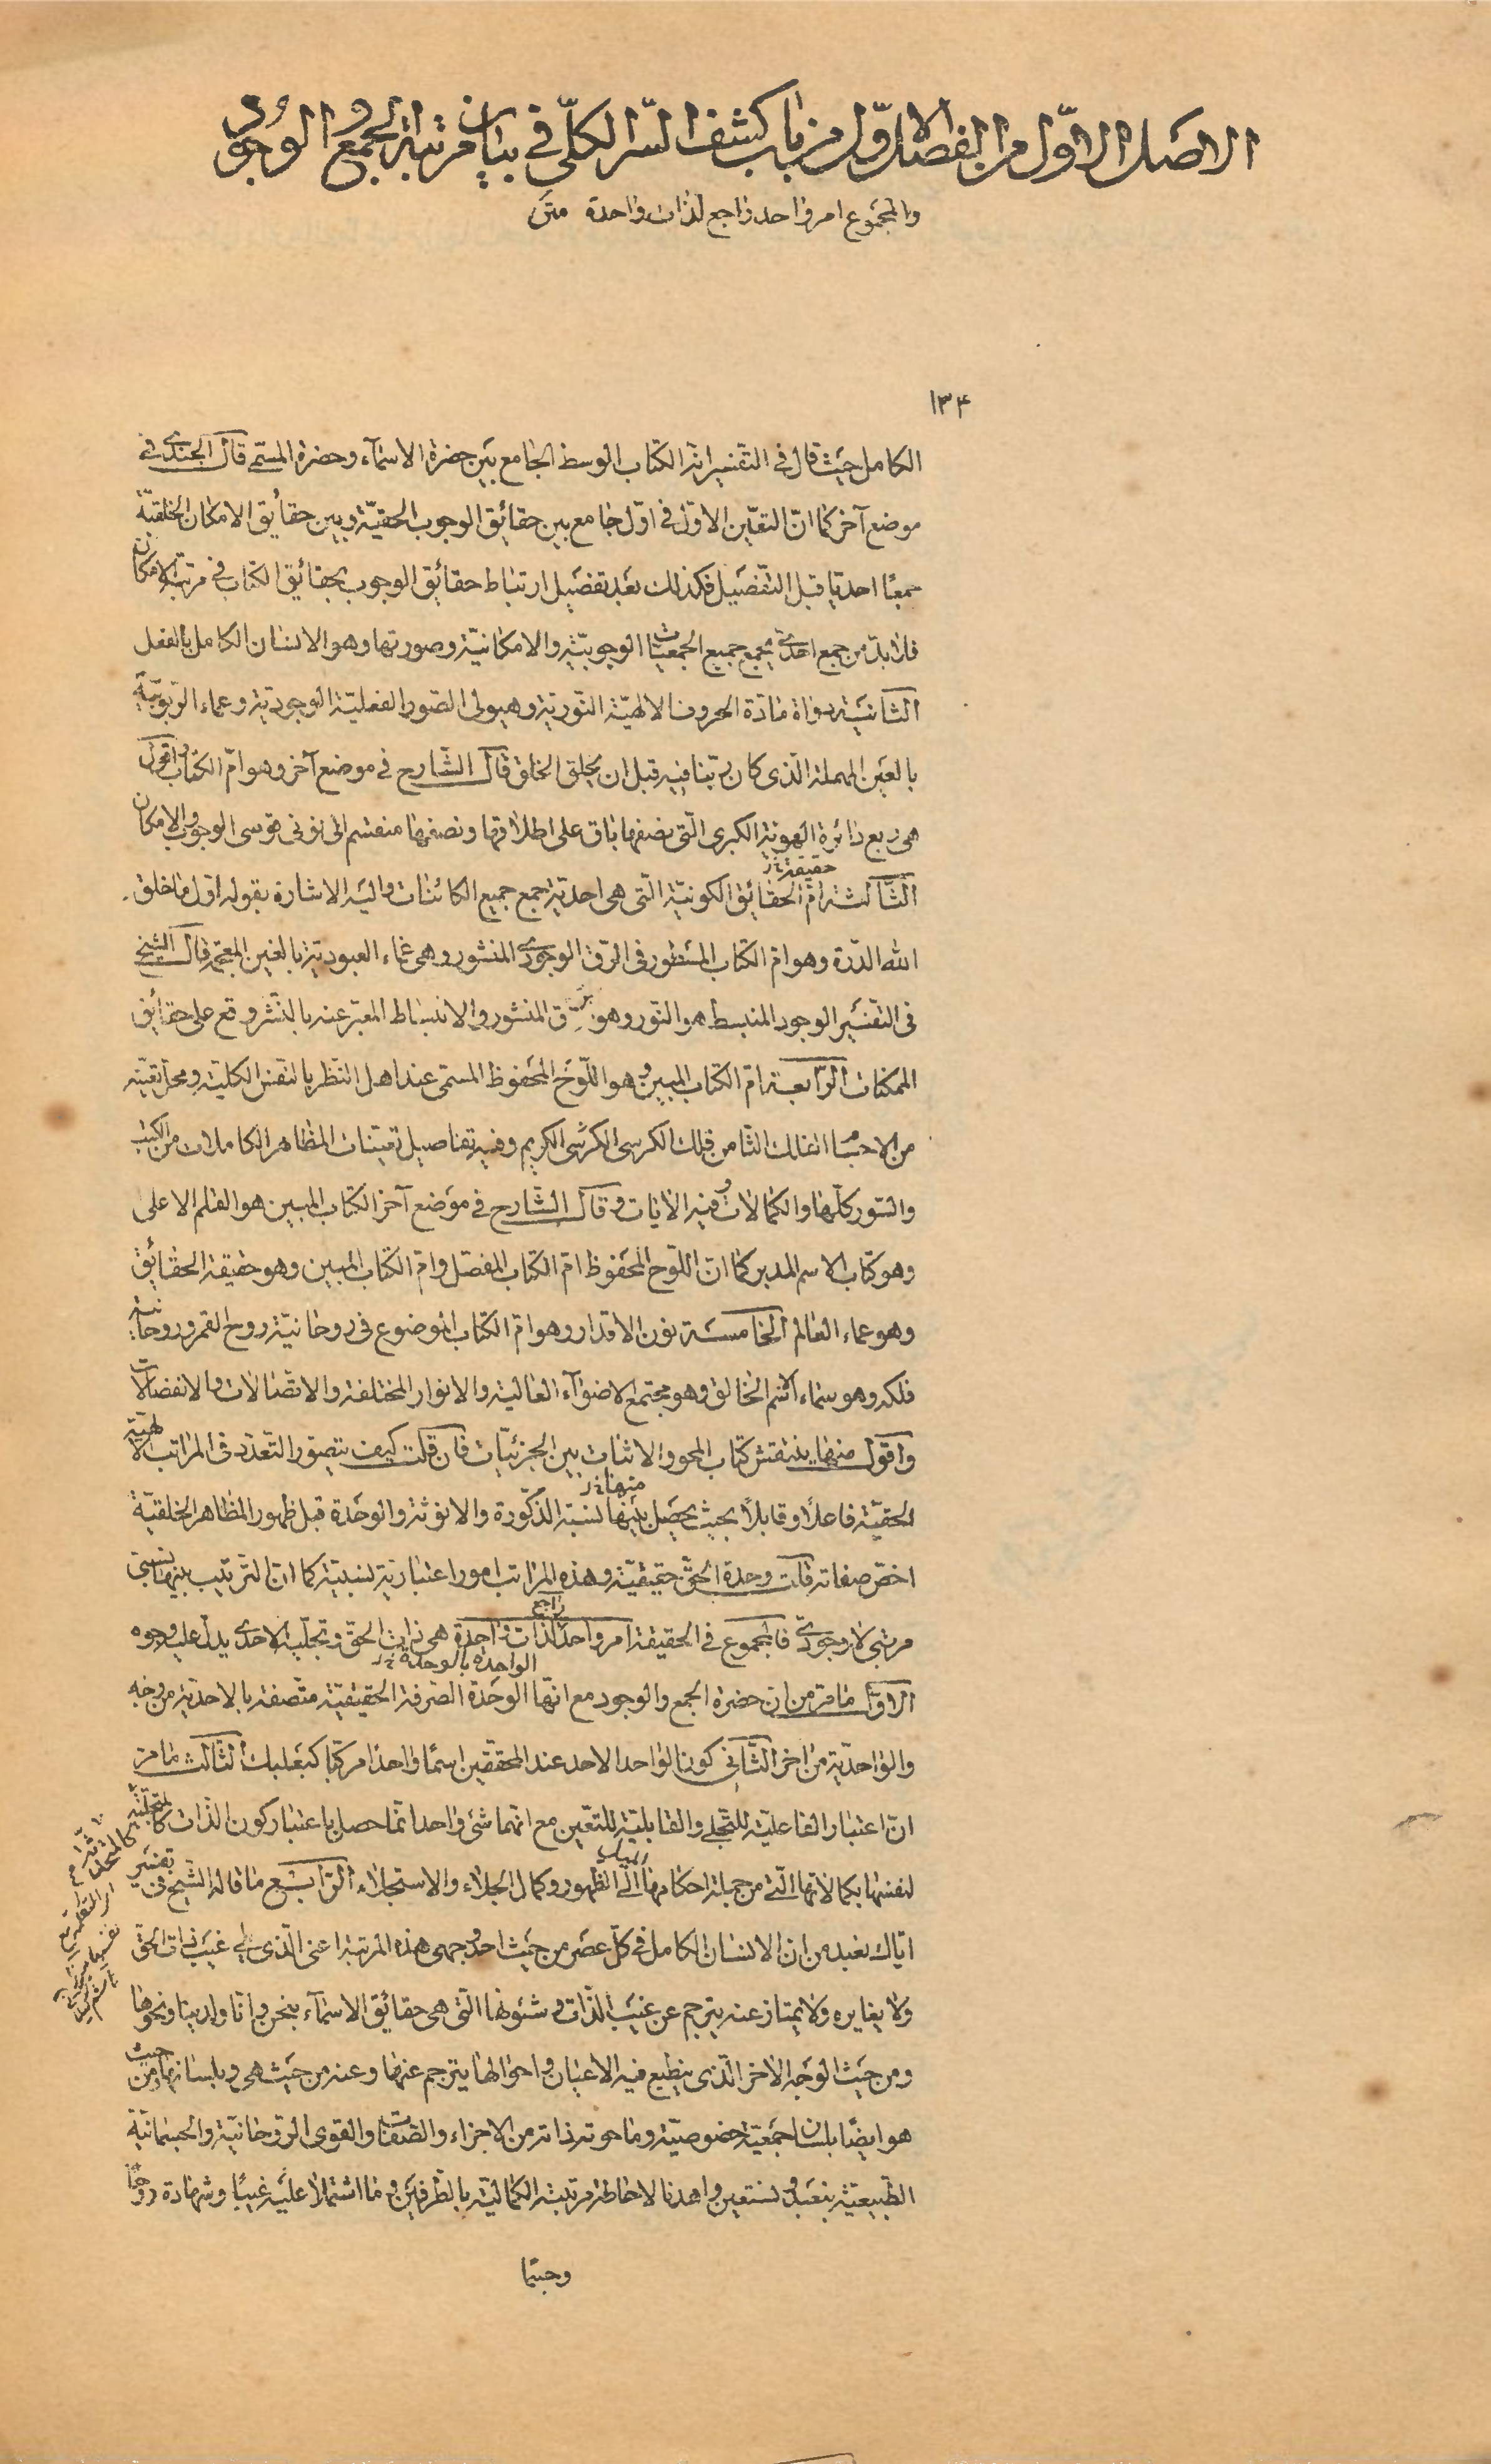 الاصل الاوّل من الفصل الاوّل من باب كشف السّر الكلّى فى بيان مرتبة الجمع و الوجود
والمجموع امر واحد راجع لذات واحدة متن
١٣۴
الكامل حيث قال فى التفسير انه الكتاب الوسط الجامع بين حضرة الاسماء وحضرة المسمّى قال الجندى فى
موضع آخر كما انّ التعيّن الاوّل فى اوّل جامع بين حقائق الوجوب الحقيّة وبين حقايق الامكان الخلقيّة
جمعًا احديّا قبل التفصيل فكذلك بعد تفصيل ارتباط حقائق الوجوب بحقائق الكتاب فى مرتبة الامكان
فلابدّ من جمع احدى يجمع جميع الجمعيّات الوجوبيّة والامكانيّة وصورتها وهو الانسان الكامل بالفعل
الثانية دواة مادّة الحروف الالهيّة النّورية وهيولى الصّور الفعليّة الوجوديّة وعماء الرّبوبيّة
بالعين المهملة الّذى كان ربّنا فيه قبل ان يخلق الخلق قال الشّارح فى موضع آخر وهو امّ الكتاب واقول
هى ربع دائرة الهويّة الكبرى الّتى نصفها باق على اطلاقها ونصفها منقسم الى نونى قوسى الوجوب والامكان
حقيقة نز
الثّالثة امّ الحقائق الكونيّة الّتى هى احديّة جمع جميع الكائنات واليه الاشارة بقوله اوّل ما خلق
الله الدّرة وهو امّ الكتاب المسطور فى الرّق الوجودى المنشور وهى غماء العبوديّة بالغين المعجمة قال الشّيخ
فى التفسير الوجود المنبسط هو النّور وهو الرّق المنشور والانبساط المعبّر عنه بالنّشر وقع على حقائق
الممكنات الرّابعة امّ الكتاب المبين وهو اللّوح المحفوظ المسمّى عند اهل النّظر بالنّفس الكلّية ومحلّ تعيّنه
من الاجسام الفلك الثّامن فلك الكرسى الكرسى الكريم وفيه تفاصيل تعيّنات المظاهر الكاملات من الكتب
والسّور كلّها والكمالات وفيه الايات وقال الشّارح فى موضع آخر الكتاب المبين هو القلم الاعلى
وهو كتاب الاسم المدبر كما انّ اللّوح المحفوظ امّ الكتاب المفصّل وامّ الكتاب المبين وهو حقيقة الحقائق
وهو عماء العالم الخامسة نون الاقدار وهو امّ الكتاب الموضوع فى روحانيّة روح القمر وروحانيّة
فلكه وهو سماء الاسم الخالق وهو مجتمع الاضواء العالية والانوار المختلفة والاتّصالات والانفصالات
واقول منها ينتقش كتاب المحو والاثبات بين الجزئيّات فان قلت كيف يتصوّر التّعدّد فى المراتب الالهيّة
منها نز
الحقيّة فاعلًا وقابلًا بحيث يحصل بينها نسبة الذّكورة والانوثة والوحدة قبل ظهور المظاهر الخلقيّة
اخصّ صفاته قلت وحدة الحقّ حقيقيّة وهذه المراتب امور اعتباريّة نسبيّة كما انّ التّرتيب بينها نسبىّ
راجع
مرتبى لا وجودىّ فالمجموع فى الحقيقة امر واحد لذات واحدة هى ذات الحقّ وتجلّيه الاحدى يدلّ عليه وجوه
الواحدة بالوحدة نز
الاوّل ما مرّ من ان حضرة الجمع والوجود مع انّها الوحدة الصّرفة الحقيقيّة متّصفة بالاحديّة من وجه
والواحديّة من اخر الثّانى كون الواحد الاحد عند المحقّقين اسمًا واحدًا مركّبا كبعلبك الثّالث ما مرّ
انّ اعتبار الفاعليّة للتّجلّى والقابليّة للتّعيّن مع انّهما شئ واحد انّما حصل باعتبار كون الذّات كالمتجلّية
لنفسها بكمالاتها الّتى من جملة احكامها الى الظهور وكمال الجلاء والاستجلاء الرّابع ما قاله الشّيخ فى تفسير
ايّاك نعبد من ان الانسان الكامل فى كلّ عصر من حيث احد وجهى هذه المرتبة اعنى الّذى يلى غيب ذات الحق
ولا يغايره ولا يمتاز عنه يترجم عن غيب الذّات وشئونها الّتى هى حقائق الاسماء بنحن وانّا ولدينا ونحوها
ومن حيث الوجه الاخر الّذى ينطبع فيه الاعيان واحوالها يترجم عنها وعنه من حيث هى وبلسانها ومن حيث
هو ايضًا بلسان جمعيّة خصوصيّة وما حوته ذاته من الاجزاء والصّفات والقوى الرّوحانيّة والجسمانيّة
الطّبيعيّة بنعبد ونستعين واهدنا لاحاطة مرتبته الكماليّة بالطّرفين وما اشتملا عليه غيبًا وشهادة روحًا
وجسمًا